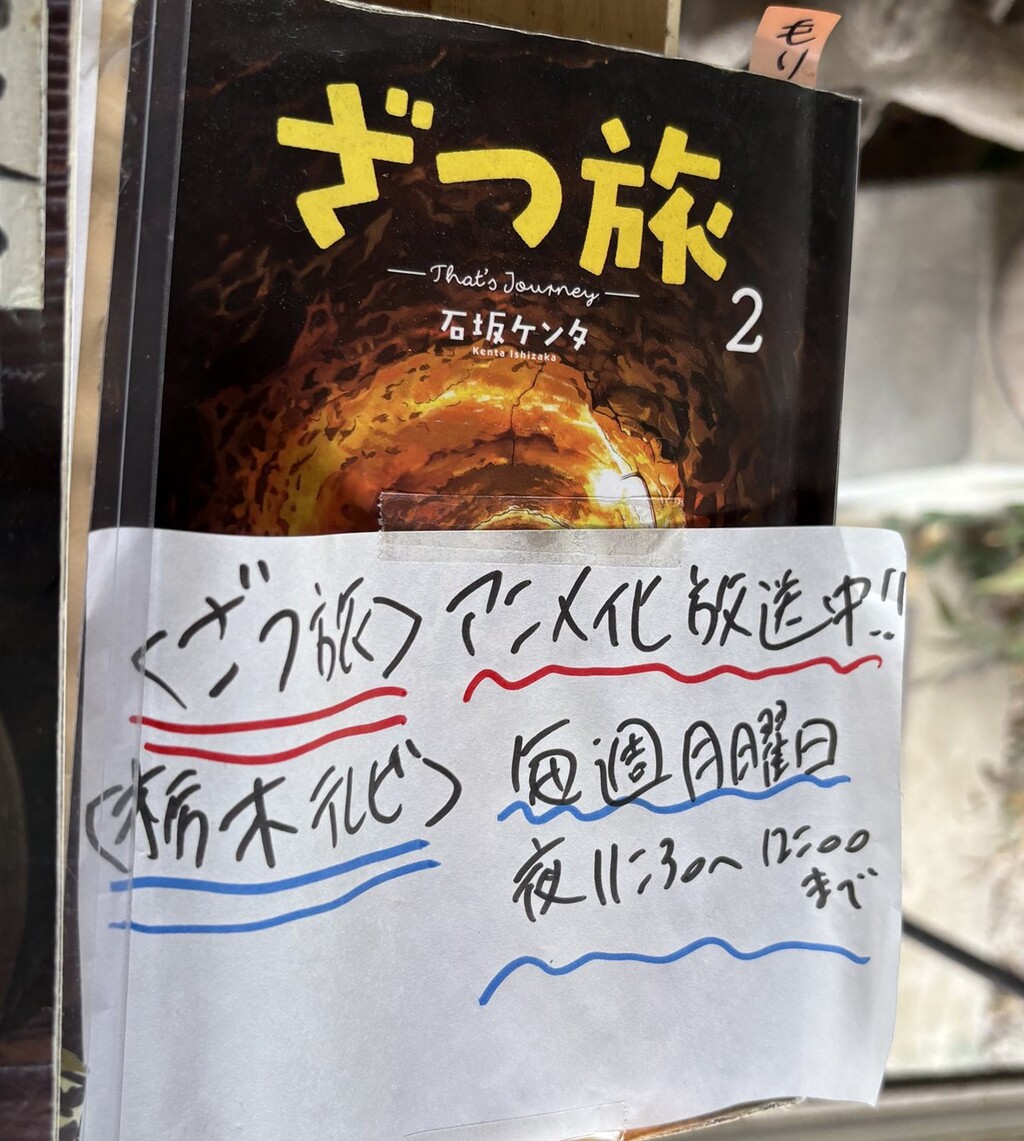 モリ
ざつ旅
That's Journey
2
石坂ケンタ
Kenta Ishizaka
〈ざつ旅〉 アニメ化放送中!!
〈栃木テレビ〉 毎週月曜日
夜11:30〜12:00
まで